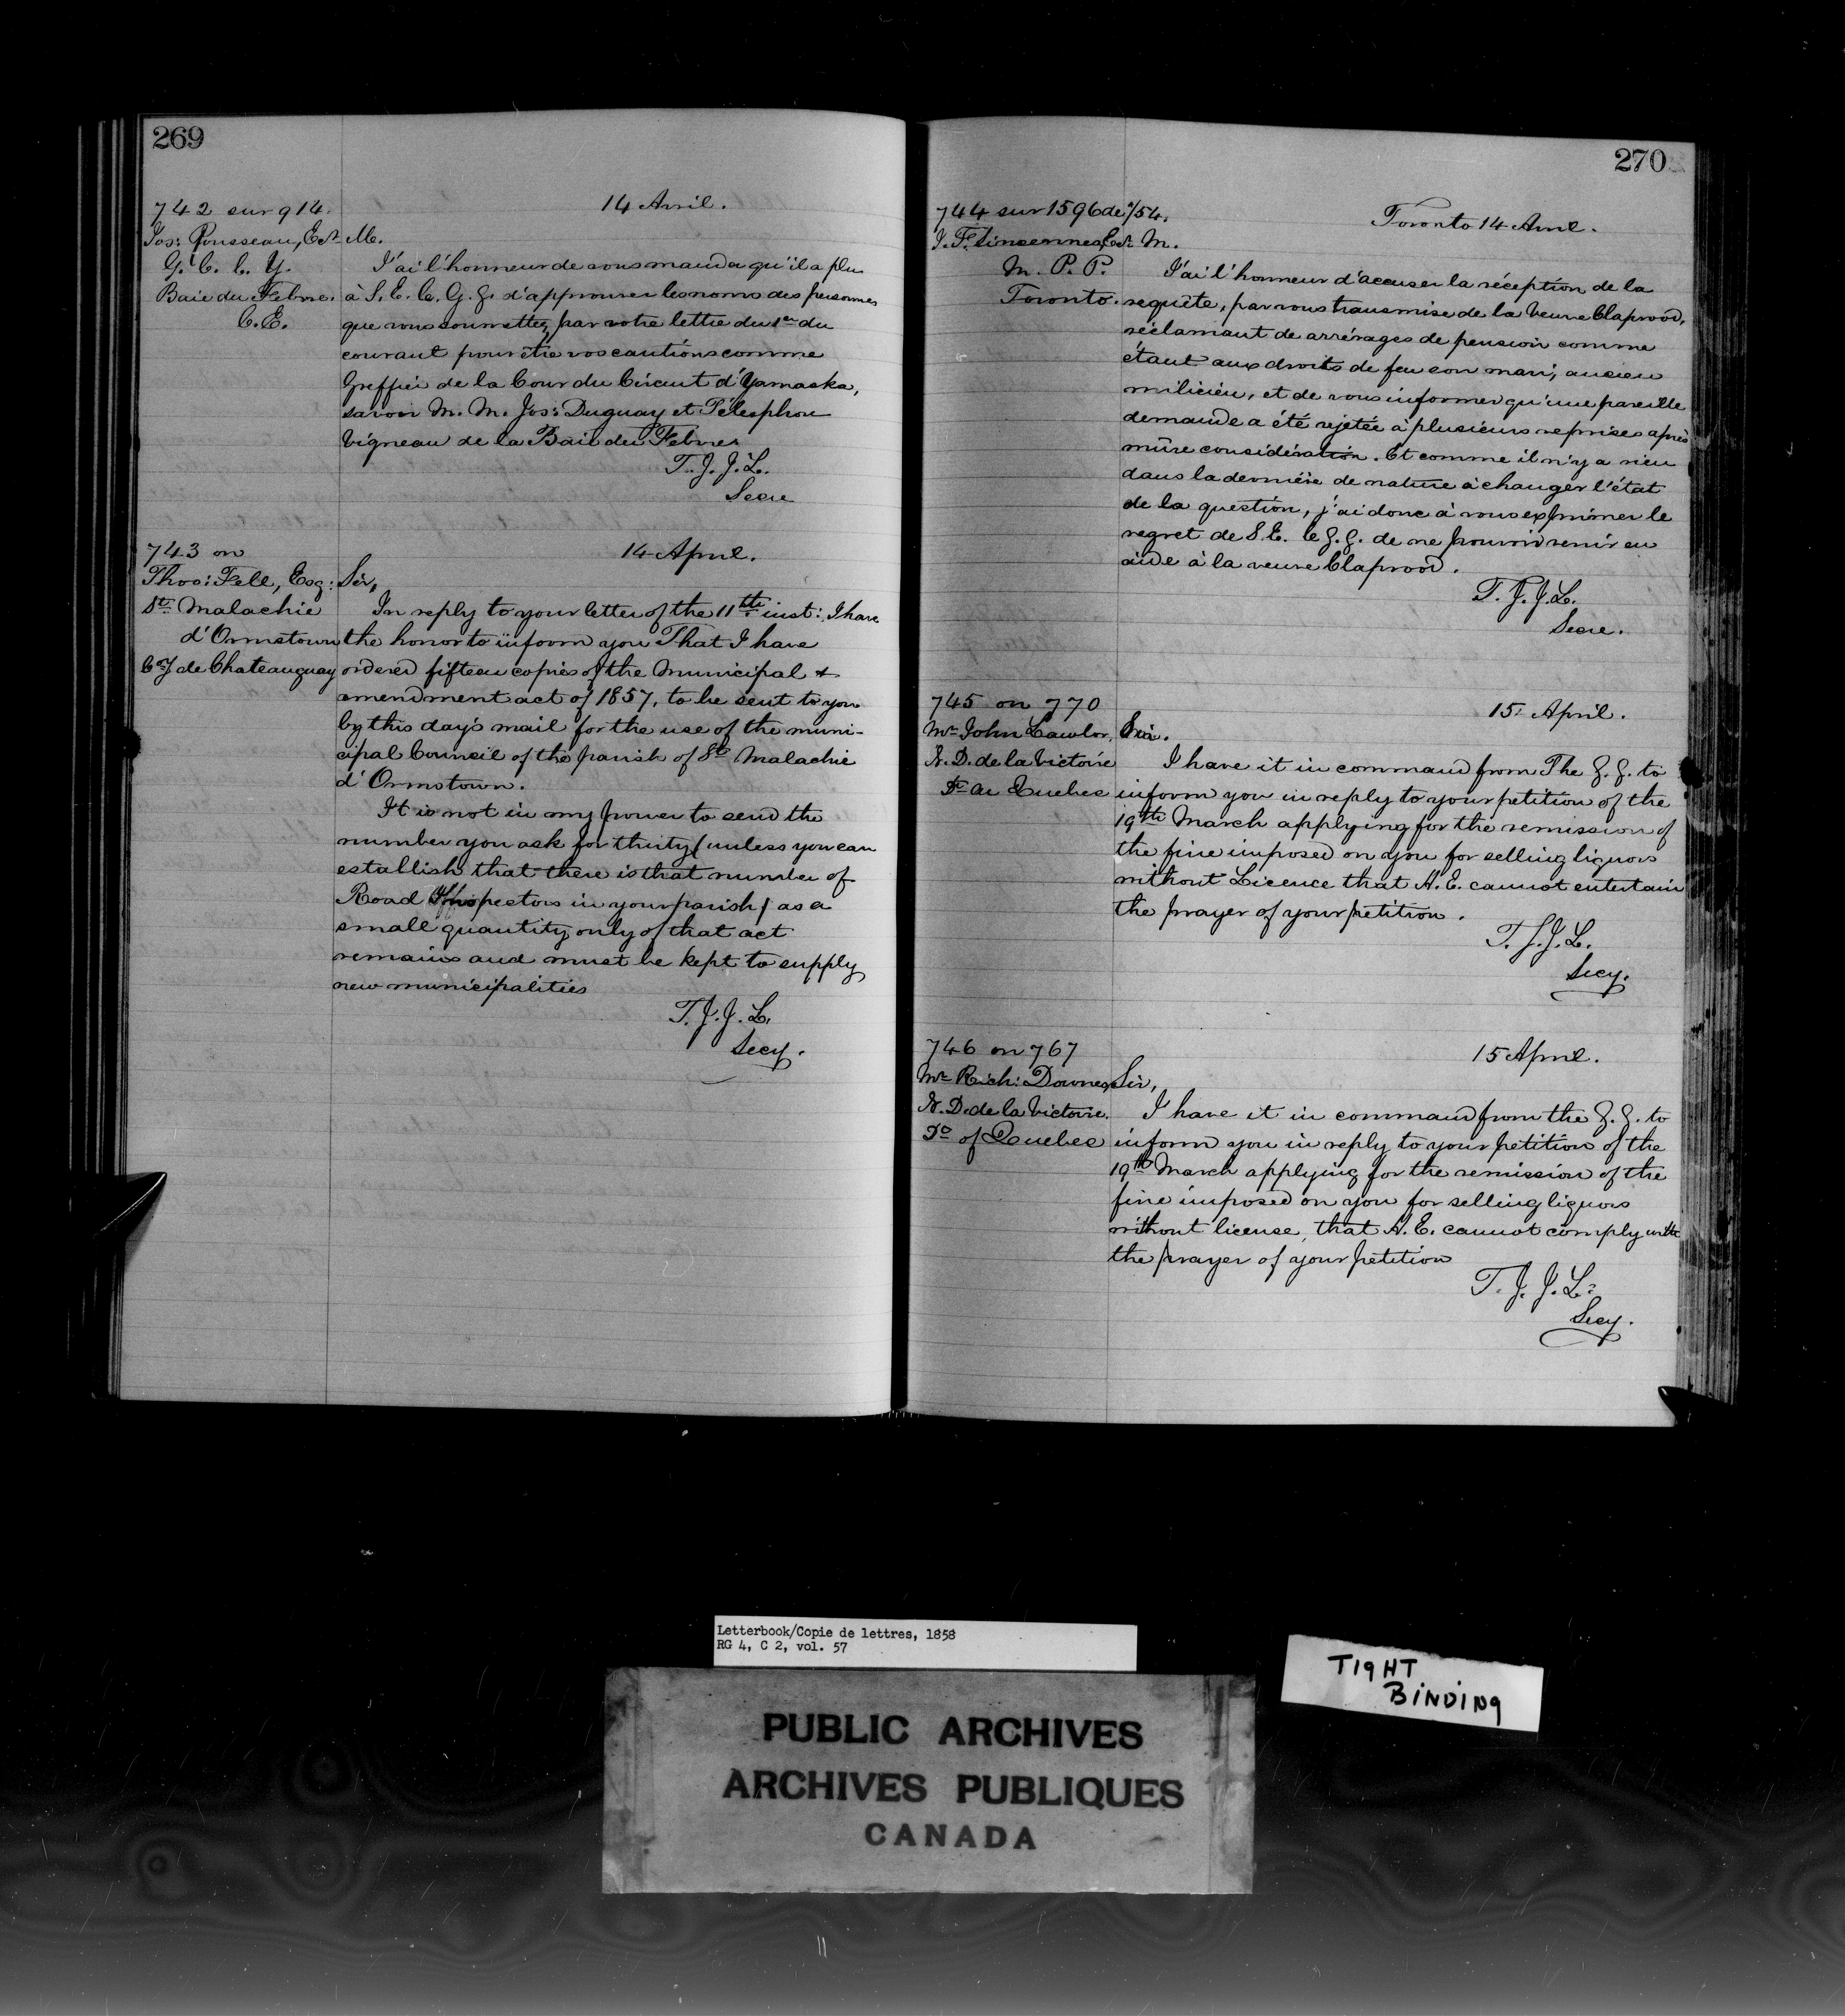 269
742 sur 914.
14 Avril.
Jos: Rousseau, Ecr M.
G. C. C. Y.
Baie du Febvre.
C. E.
J'ai l'honneur de vous mander qu'il a plu
à S. E. le G. G. d'approuver les noms des personnes
que vous soumettez par votre lettre du 1er du
courant pour être vos cautions comme
Greffier de la Cour du Circuit d'Yamaska,
savoir M. M. Jos: Duguay et Télesphore
Vigneau de la Baie du Febvre
T. J. J. L.
Secre
743 on
14 April.
Thos: Fell, Esq:
St Malachie
d'Ormstown
Cty de Chateauguay
Sir,
In reply to your letter of the 11th inst: I have
the honor to inform you That I have
ordered fifteen copies of the Municipal &
amendment act of 1857, to be sent to you
by this day's mail for the use of the muni-
cipal Council of the parish of St Malachie
d'Ormstown.
It is not in my power to send the
number you ask for thirty (unless you can
establish that there is that number of
Road Inspectors in your parish) as a
small quantity only of that act
remains and must be kept to supply
new municipalities
T. J. J. L.
Secy.
270
744 sur 1596 de /54.
Toronto 14 Avril.
Ecr M.
M. P. P.
Toronto.
J'ai l'honneur d'accuser la réception de la
requête, par vous transmise de la Veuve Claprood,
réclamant de arrérages de pension comme
étant aux droits de feu son mari, ancien
milicien, et de vous informer qu'une pareille
demande a été rejetée à plusieurs reprises après
mûre considération. Et comme il n'y a rien
dans la dernière de nature à changer l'état
de la question, j'ai donc à vous exprimer le
regret de S. E. le G. G. de ne pouvoir venir en
aide à la veuve Claprood.
T. J. J. L.
Secre.
745 on 770
15 April.
Mr John Lawlor,
N. D. de la Victoire
Dt de Quebec
Sir.
I have it in command from The G. G. to
inform you in reply to your petition of the
19th March applying for the remission of
the fine imposed on you for selling liquors
without Licence that H. E. cannot entertain
the prayer of your petition.
T. J. J. L.
Secy.
746 on 767
15 April.
Mr Rich: Downes
N. D. de la Victoire.
Dt of Quebec
Sir,
I have it in command from the G. G. to
inform you in reply to your petition of the
19th March applying for the remission of the
fine imposed on you for selling liquors
without license, that H. E. cannot comply with
the prayer of your petition
T. J. J. L.
Secy.
Letterbook/Copie de lettres, 1858
RG 4, C 2, vol. 57
TIGHT
BINDING
PUBLIC ARCHIVES
ARCHIVES PUBLIQUES
CANADA